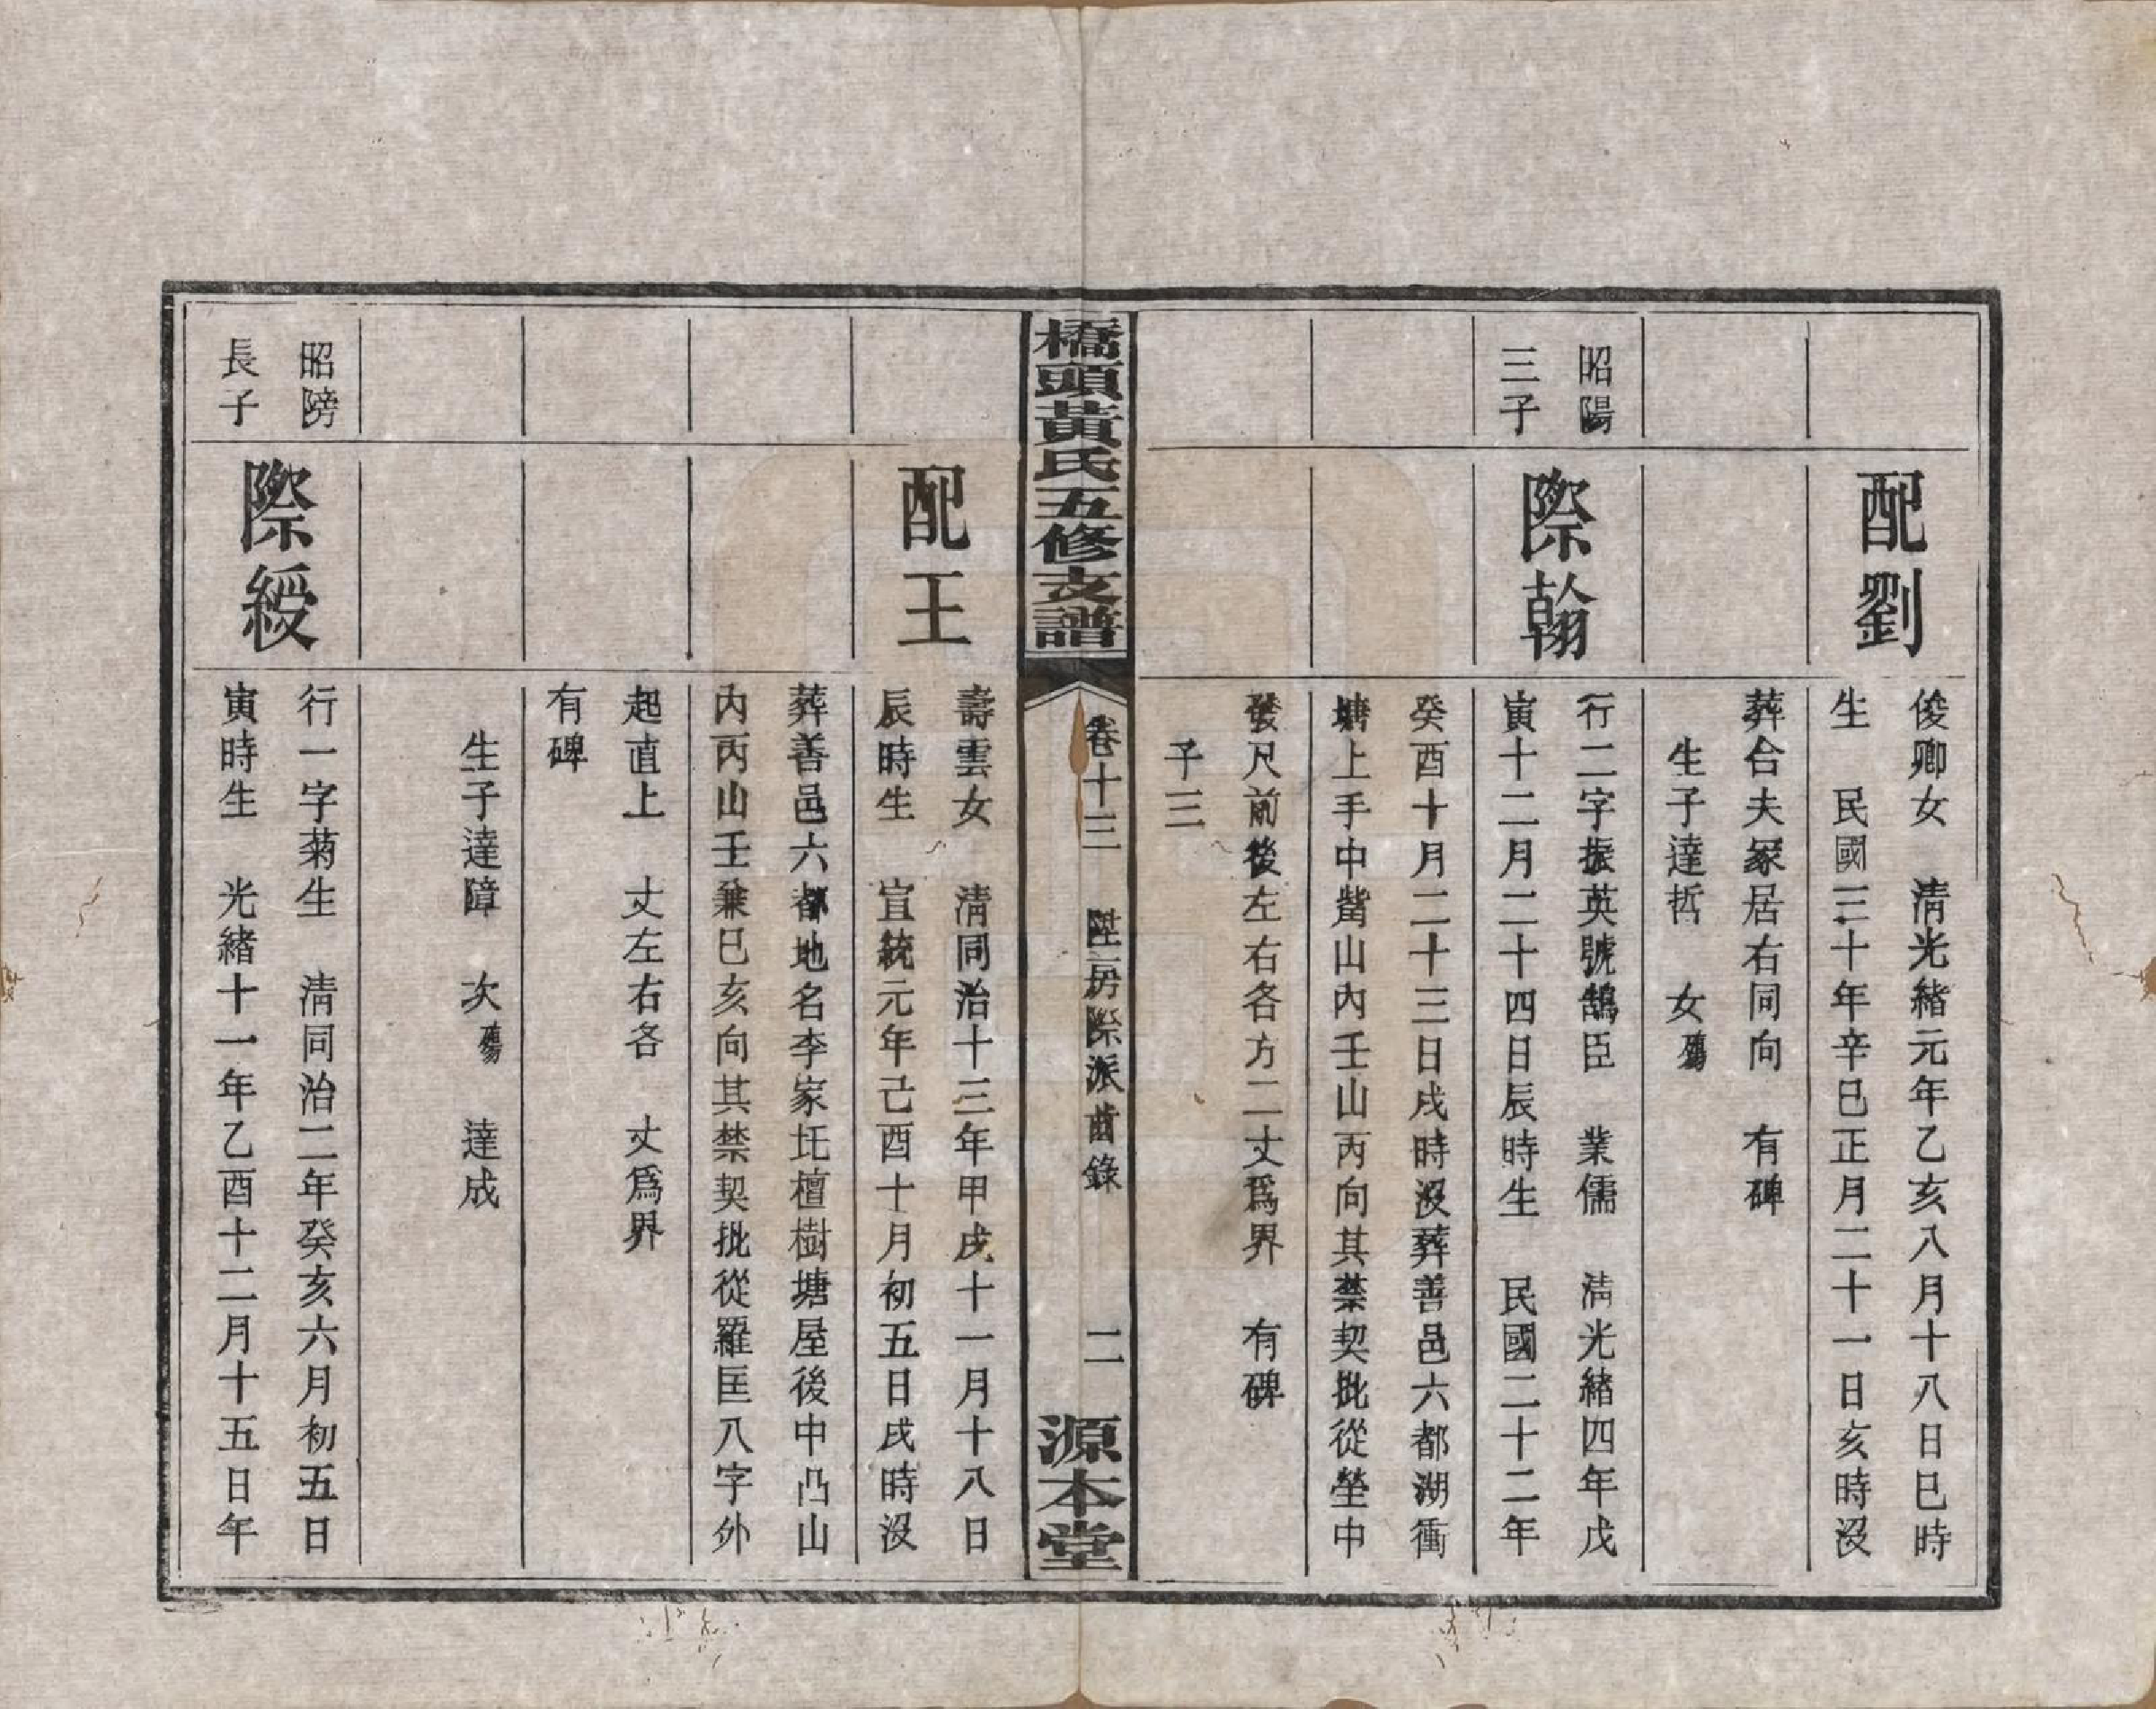 配劉
俊卿女　清光緒元年乙亥八月十八日巳時
生　民國三十年辛巳正月二十一日亥時沒
葬合夫冢居右同向　有碑
生子達哲　女殤
昭陽
三子
際翰
行二字振英號鵠臣　業儒　清光緒四年戊
寅十二月二十四日辰時生　民國二十二年
癸酉十月二十三日戌時沒葬善邑六都湖衝
塘上手中觜山內壬山丙向其禁契批從塋中
發尺前後左右各方二丈爲界　有碑
子三
橋頭黃氏五修支譜
卷十三　陞房際派齒錄　二
源本堂
配王
壽雲女　清同治十三年甲戌十一月十八日
辰時生　宣統元年己酉十月初五日戌時沒
葬善邑六都地名李家坵檀樹塘屋後中凸山
內丙山壬兼巳亥向其禁契批從羅匡八字外
起直上　丈左右各　丈爲界
有碑
生子達障　次殤　達成
昭牓
長子
際綬
行一字菊生　清同治二年癸亥六月初五日
寅時生　光緒十一年乙酉十二月十五日午